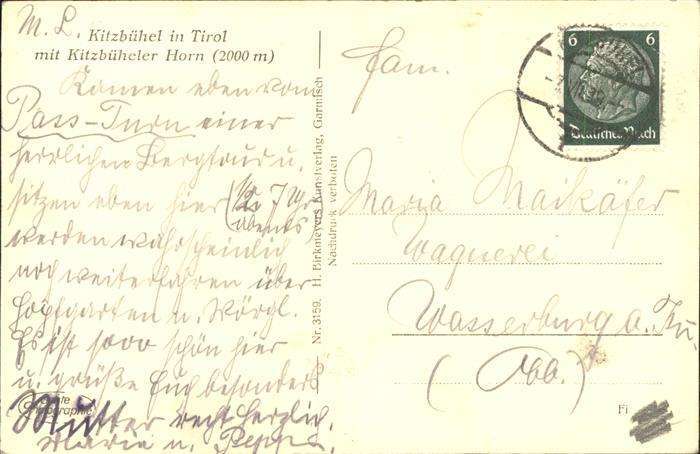 M. L.
Kitzbühel in Tirol
mit Kitzbüheler Horn (2000 m)
Kamen eben vom
Pass-Turn einer
herrlichen Bergtour u.
sitzen eben hier (1/2 7 Uhr
abends)
werden wahrscheinlich
noch weiterfahren über
Hopfgarten u. Wörgl.
Es ist sooo schön hier
u. grüße Euch besonders
Mutter recht herzlich.
Maria u.
Echte
Photographie
Nr. 3159. H. Birkmeyers Kunstverlag, Garmisch
Nachdruck verboten
6 6
Deutsches Reich
Fam.
Maria Maikäfer
Wagnerei
Wasserburg a.
(Obb.)
Fi